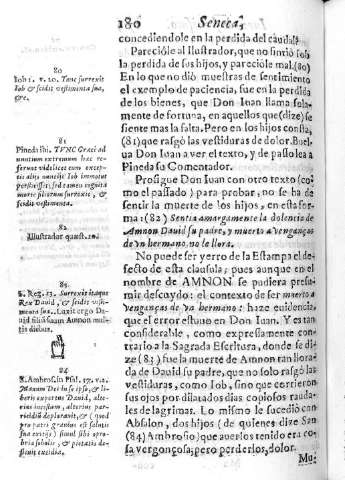 180 Seneca,
concediendole en la perdida del caudal?
Parecióle al Ilustrador, que no sintió Iob
la perdida de sus hijos, y parecióle mal. (80)
En lo que no dió muestras de sentimiento
el exemplo de paciencia, fue en la perdida
de los bienes, que Don Iuan llama sola-
mente de fortuna, en aquellos que (dize) se
siente mas la falta. Pero en los hijos consta,
(81) que rasgó las vestiduras de dolor. Buel-
ua Don Iuan a ver el texto, y de passo lea a
Pineda su Comentador.
Prosigue Don Iuan con otro texto (co-
mo el passado) para probar, no se ha de
sentir la muerte de los hijos, en esta for-
ma: (82) Sentia amargamente la dolencia de
Amnon Dauid su padre, y muerto a venganças
de vn hermano, no le llora.
No puede ser yerro de la Estampa el de-
fecto de esta clausula; pues aunque en el
nombre de AMNON se pudiera presu-
mir descuydo: el contexto de ser muerto a
venganças de vn hermano: haze euidencia,
que el error estuuo en Don Iuan. Y es tan
considerable, como expressamente con-
trario a la Sagrada Escritura, donde se di-
ze (83) fue la muerte de Amnon tan llora-
da de Dauid su padre, que no solo rasgó las
vestiduras, como Iob, sino que corrieron
sus ojos por dilatados dias copiosos rauda-
les de lagrimas. Lo mismo le sucedió con
Absalon, dos hijos (de quienes dize San
(84) Ambrosio) que auerlos tenido era co-
sa vergonçosa; pero perderlos, dolor.
Mu-
80
Iob 1. v. 20. Tunc surrexit
Iob & scidit vestimenta sua,
&c.
81
Pineda ibi. TVNC Graci ad
nuntium extremum hæc re-
ferunt
82
Illustrador quæst.
83
2. Reg. 13. Surrexit itaque
Rex Dauid, & scidit vesti-
menta sua. Luxit ergo Da-
uid filium suum Amnon mul-
tis diebus.
84
S. Ambros. in Psal.